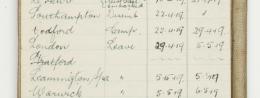 Southampton Disemb. 22.4.19 "
Codford Camp. 22.4.19 29.4.19
London Leave 29.4.19 5.5.19
Stratford
Leamington Spa " 5.5.19
Warwick " 5.5.19 6.5.19